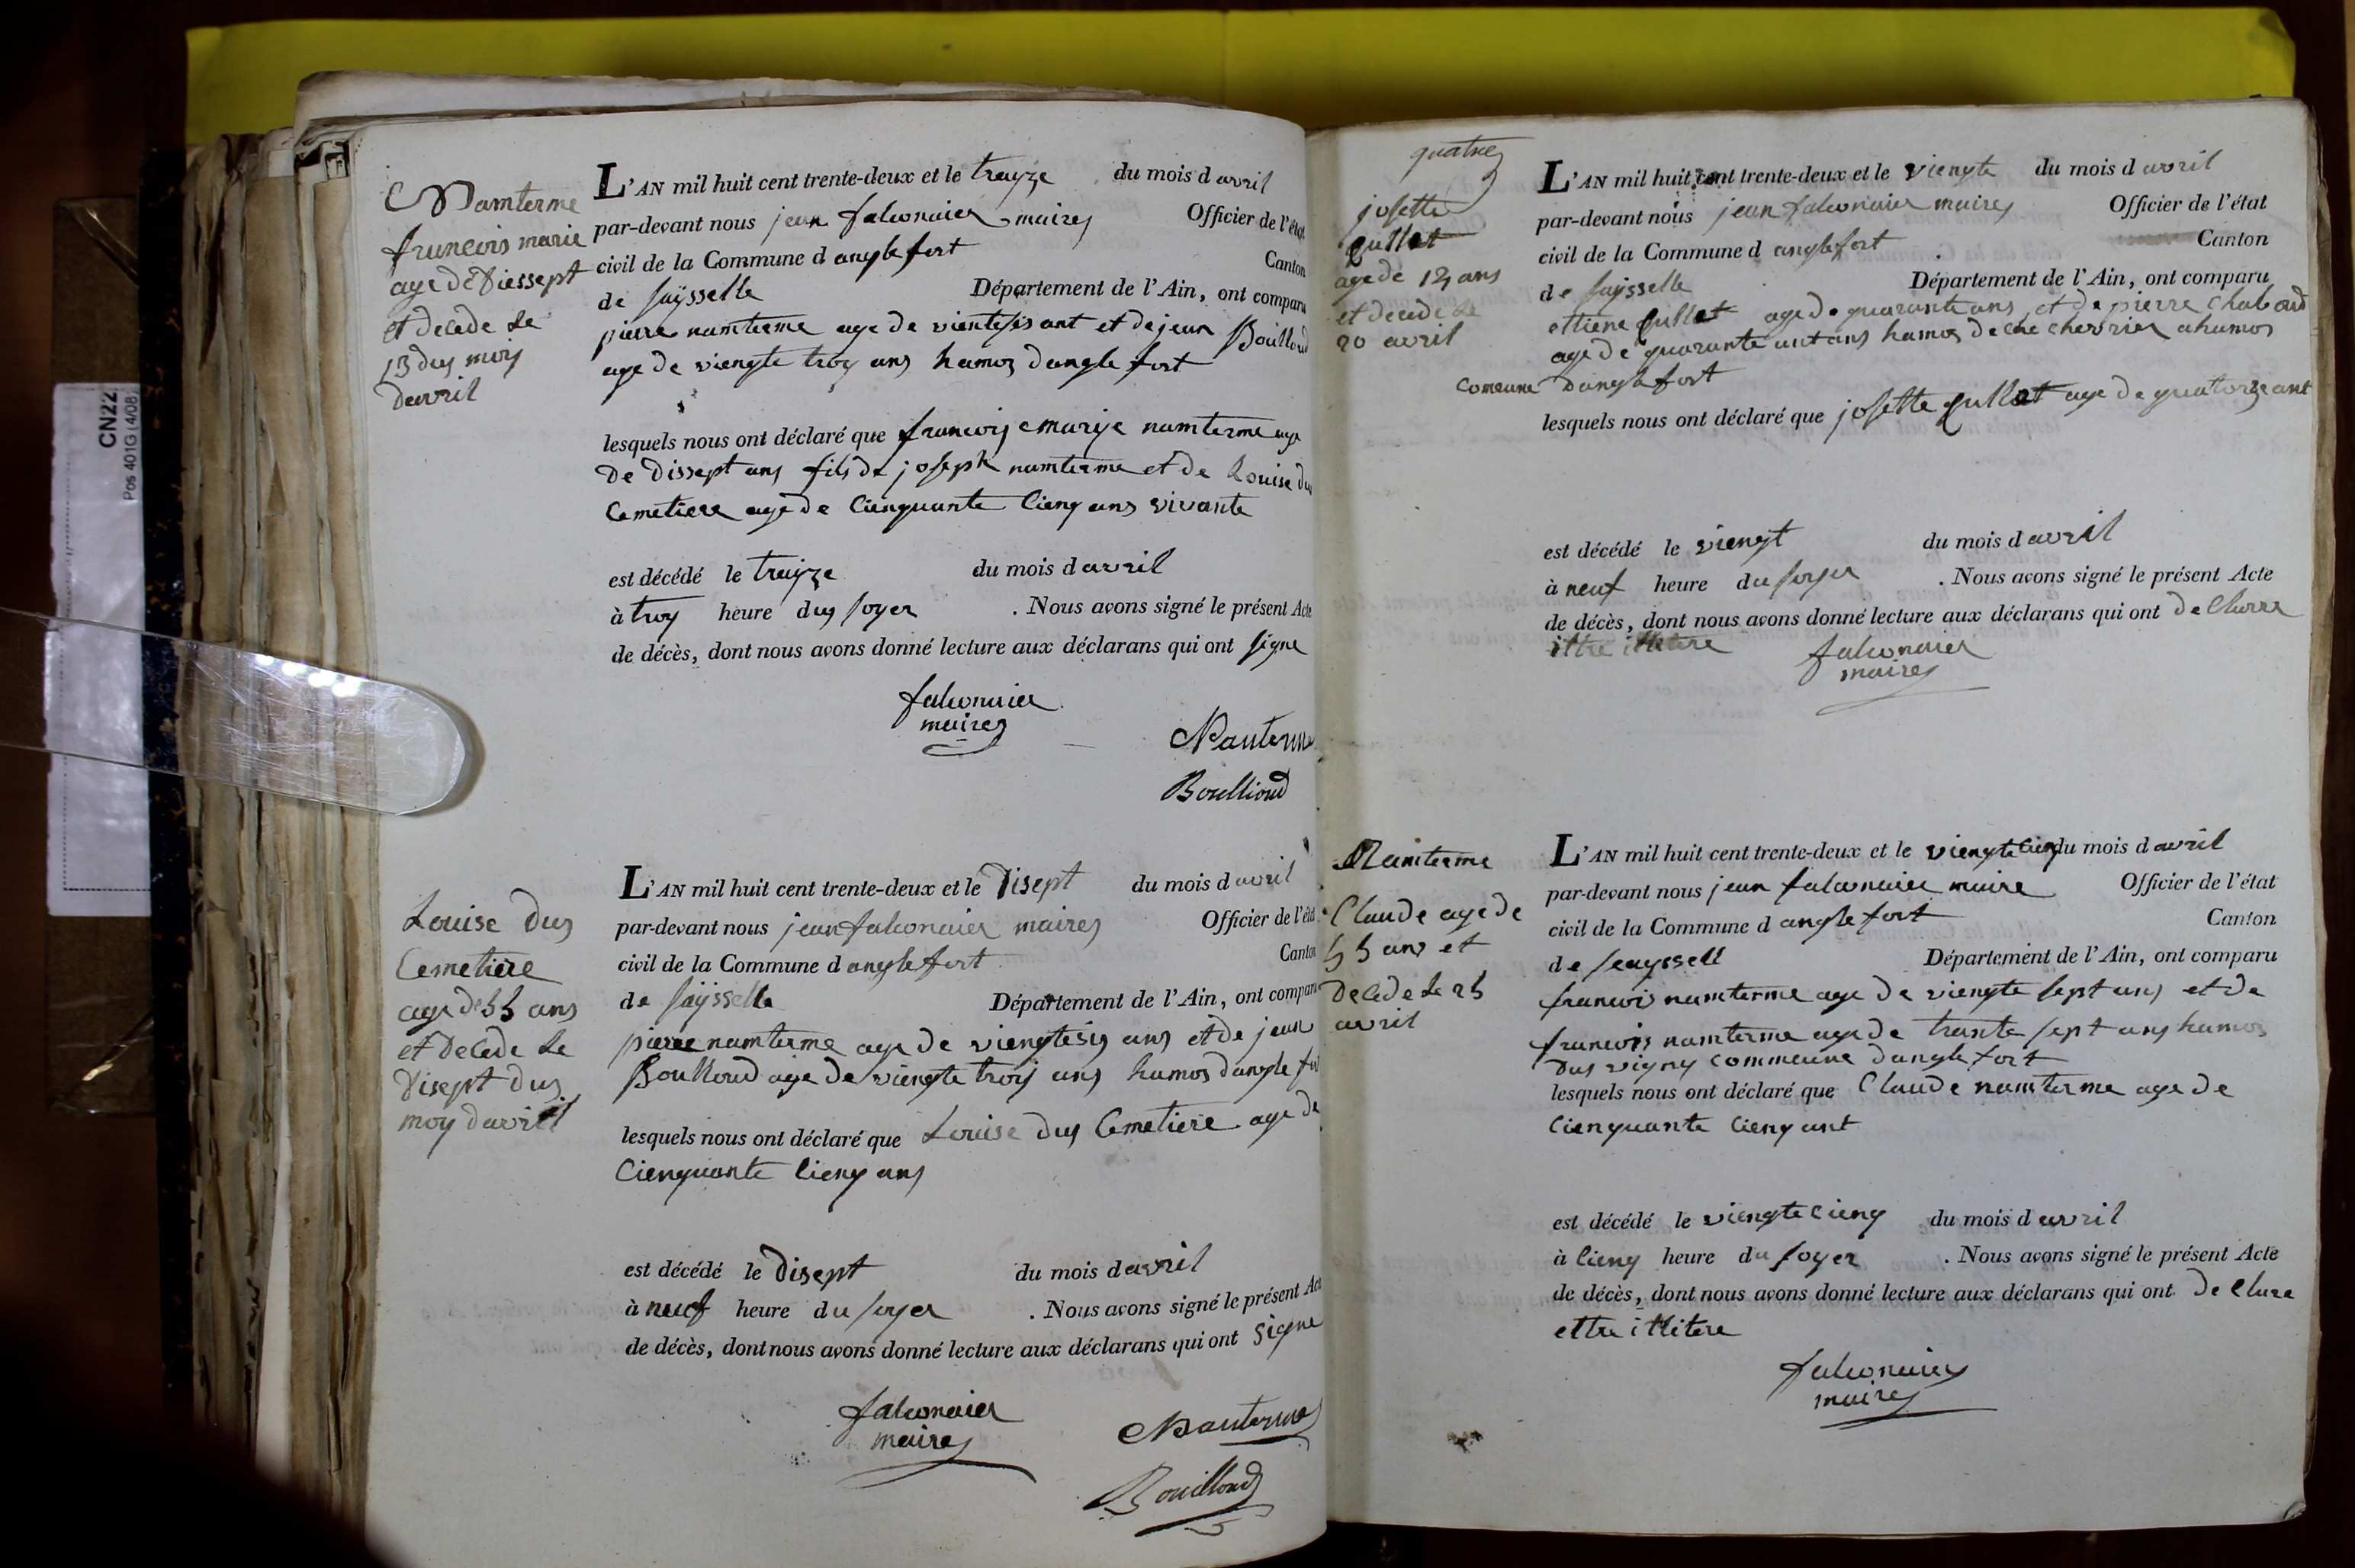 CN22
Pos 401G (4/08)
Namterme
francois marie
age de Diessept
et decede Le
13 duy moiy
Davril
L'AN mil huit cent trente-deux et le trayze du mois d avril
par-devant nous jean falconnier maires Officier de l'état
civil de la Commune d anglefort Canton
de Saÿsselle Département de l'Ain, ont comparu
pierre namterme age de vientesis ant et de jean Boulloud
age de viengte troy ans hamos dangle fort
lesquels nous ont déclaré que francoise marije namterme age
de dissept ans fils de joseph namterme et de Louise du
Cemetiere age de Cienquante Cienq ans vivante
est décédé le trayze du mois d avril
à troy heure duy soyer . Nous avons signé le présent Acte
de décès, dont nous avons donné lecture aux déclarans qui ont signe
falconnier
maires
Nanterme
Boullioud
Louise Duy
Cemetiere
age de 55 ans
et Decede Le
Disept duy
moy davril
L'AN mil huit cent trente-deux et le Disept du mois d avril
par-devant nous jean falconnier maires Officier de l'état
civil de la Commune d anglefort Canton
de Saÿsselle Département de l'Ain, ont comparu
pierre namterme age de viengtesis ans et de jean
Boulloud age de viengte troy ans hamos dangle fort
lesquels nous ont déclaré que Louise duy Cemetiere age de
Cienquante Cienq ans
est décédé le Disept du mois d avril
à neuf heure du soyer . Nous avons signé le présent Acte
de décès, dont nous avons donné lecture aux déclarans qui ont signe
falconnier
maires
Nanterme
Bouilloud
quatre
josette
Cullet
age de 14 ans
et decede Le
20 avril
L'AN mil huit cent trente-deux et le viengte du mois d avril
par-devant nous jean falconnier maires Officier de l'état
civil de la Commune d anglefort Canton
de Saysselle Département de l'Ain, ont comparu
ettiene Cullet age de quarante ans et de pierre Chaboud
age de quarante uit ans hamos de che chevrier ahamos
Comeune Danglefort
lesquels nous ont déclaré que josette Cullet age de quatorze ant
est décédé le viengt du mois d avril
à neuf heure du soyer . Nous avons signé le présent Acte
de décès, dont nous avons donné lecture aux déclarans qui ont declure
ittre illetere
falconnier
maires
Namterme
Claude age de
55 ans et
Decede Le 25
avril
L'AN mil huit cent trente-deux et le viengte Cienq du mois d avril
par-devant nous jean falconnier maire Officier de l'état
civil de la Commune d anglefort Canton
de Seayssell Département de l'Ain, ont comparu
francois namterme age de viengte sept ans et de
francois namterme age de trante sept ans hamos
duy vigny commeune danglefort
lesquels nous ont déclaré que Claude namterme age de
Cienquante Cienq ant
est décédé le viengte Cienq du mois d avril
à Cienq heure du soyer . Nous avons signé le présent Acte
de décès, dont nous avons donné lecture aux déclarans qui ont declure
ettre illitere
falconnier
maires